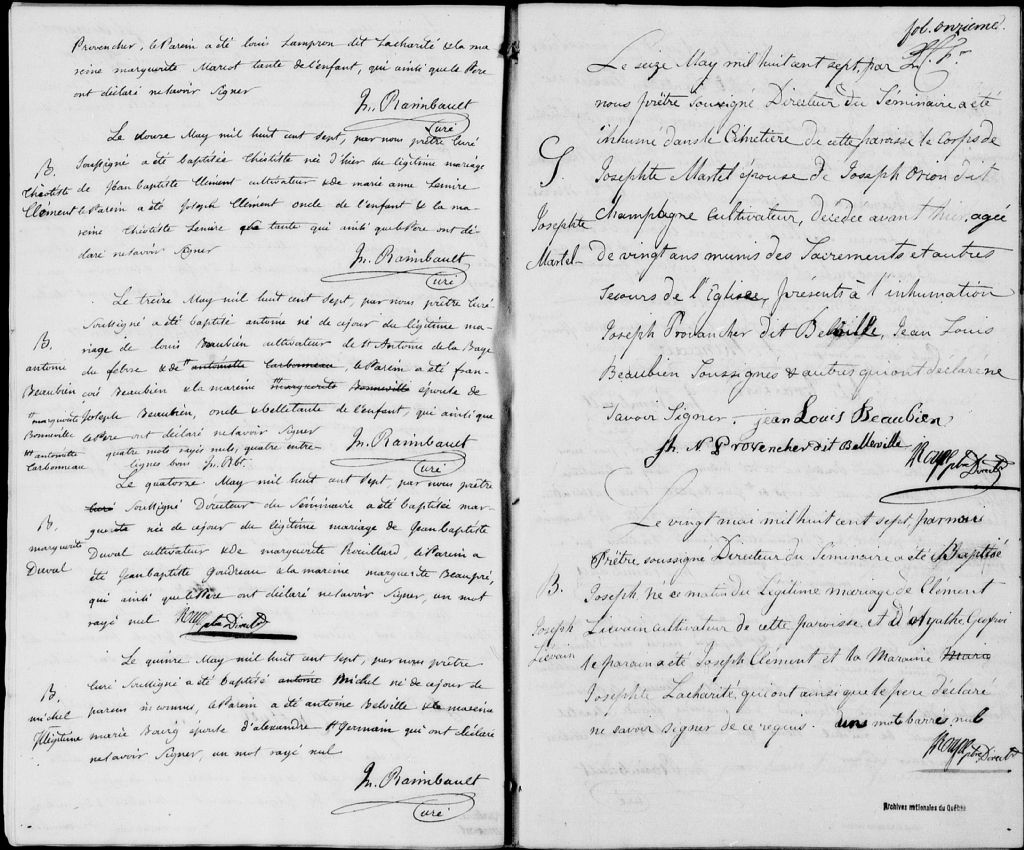 Provencher, le Parein a été louis Lampron dit Lacharité & la ma
reine marguerite Marcot tante de l'enfant, qui ainsi que le Pere
ont déclaré ne savoir signer
Jn. Raimbault
Curé
Le douze May mil huit cent sept, par nous prêtre Curé
B. Soussigné a été baptisée théotiste née d'hier du légitime mariage
théotiste de Jean baptiste Clément cultivateur & de marie anne Lemire
Clément le Parein a été Joseph Clément oncle de l'enfant & la ma-
reine théotiste Lemire tante qui ainsi que le Pere ont dé-
claré ne savoir signer
Jn. Raimbault
Curé
Le treize May mil huit cent sept, par nous prêtre Curé
Soussigné a été baptisé antoine né de ce jour du légitime ma-
B. riage de louis Beaubien cultivateur de St Antoine de la Baye
antoine du febvre & de antoinette Carbonneau, le Parein a été fran-
Beaubien çois Beaubien & la mareine marguerite Bonneville épouse de
marguerite Joseph Beaubien, oncle & belle tante de l'enfant, qui ainsi que
Bonneville le Pere ont déclaré ne savoir signer
antoinette quatre mots rayés nuls, quatre entre-
Carbonneau lignes bons Jn. Rbt.
Jn. Raimbault
Curé
Le quatorze May mil huit cent sept, par nous prêtre
curé Soussigné Directeur du Séminaire a été baptisée mar-
B. guerite née de ce jour du légitime mariage de Jean baptiste
marguerite Duval cultivateur & de marguerite Rouillard, le Parein a
Duval été Jean baptiste Goudreau & la mareine marguerite Beaupré,
qui ainsi que le Pere ont déclaré ne savoir signer, un mot
rayé nul
ptre Direct
Le quinze May mil huit cent sept, par nous prêtre
B. Curé Soussigné a été baptisé antoine Michel né de ce jour de
michel parens inconnus, le Parein a été antoine Belville & la mareine
Illégitime marie Bourg épouse d'alexandre St Germain qui ont déclaré
ne savoir signer, un mot rayé nul
Jn. Raimbault
Curé
fol. onzieme.
Le seize May mil huit cent sept, par
nous prêtre soussigné Directeur du Séminaire a été
inhumé dans le Cimetière de cette paroisse le corps de
S. Josephte Martel épouse de Joseph Orion dit
Josephte Champagne cultivateur, décédée avant hier, agée
Martel de vingt ans munis des Sacrements et autres
secours de l'Eglise, présents à l'inhumation
Joseph Provancher dit Belville, Jean Louis
Beaubien soussignés & autres qui ont déclaré ne
savoir signer. Jean Louis Beaubien
Jh. N Provencher dit Belleville
ptre Direct
Le vingt mai mil huit cent sept, par moi
Prêtre soussigné Directeur du Séminaire a été Baptisé
B. Joseph né ce matin du Légitime mariage de Clément
Joseph Lievain cultivateur de cette paroisse et d'Agathe
Lievain le parain a été Joseph Clément et la Maraine Marie
Josephte Lacharité, qui ont ainsi que le pere déclaré
ne savoir signer de ce requis. un mot barré nul
ptre Direct
Archives nationales du Québec